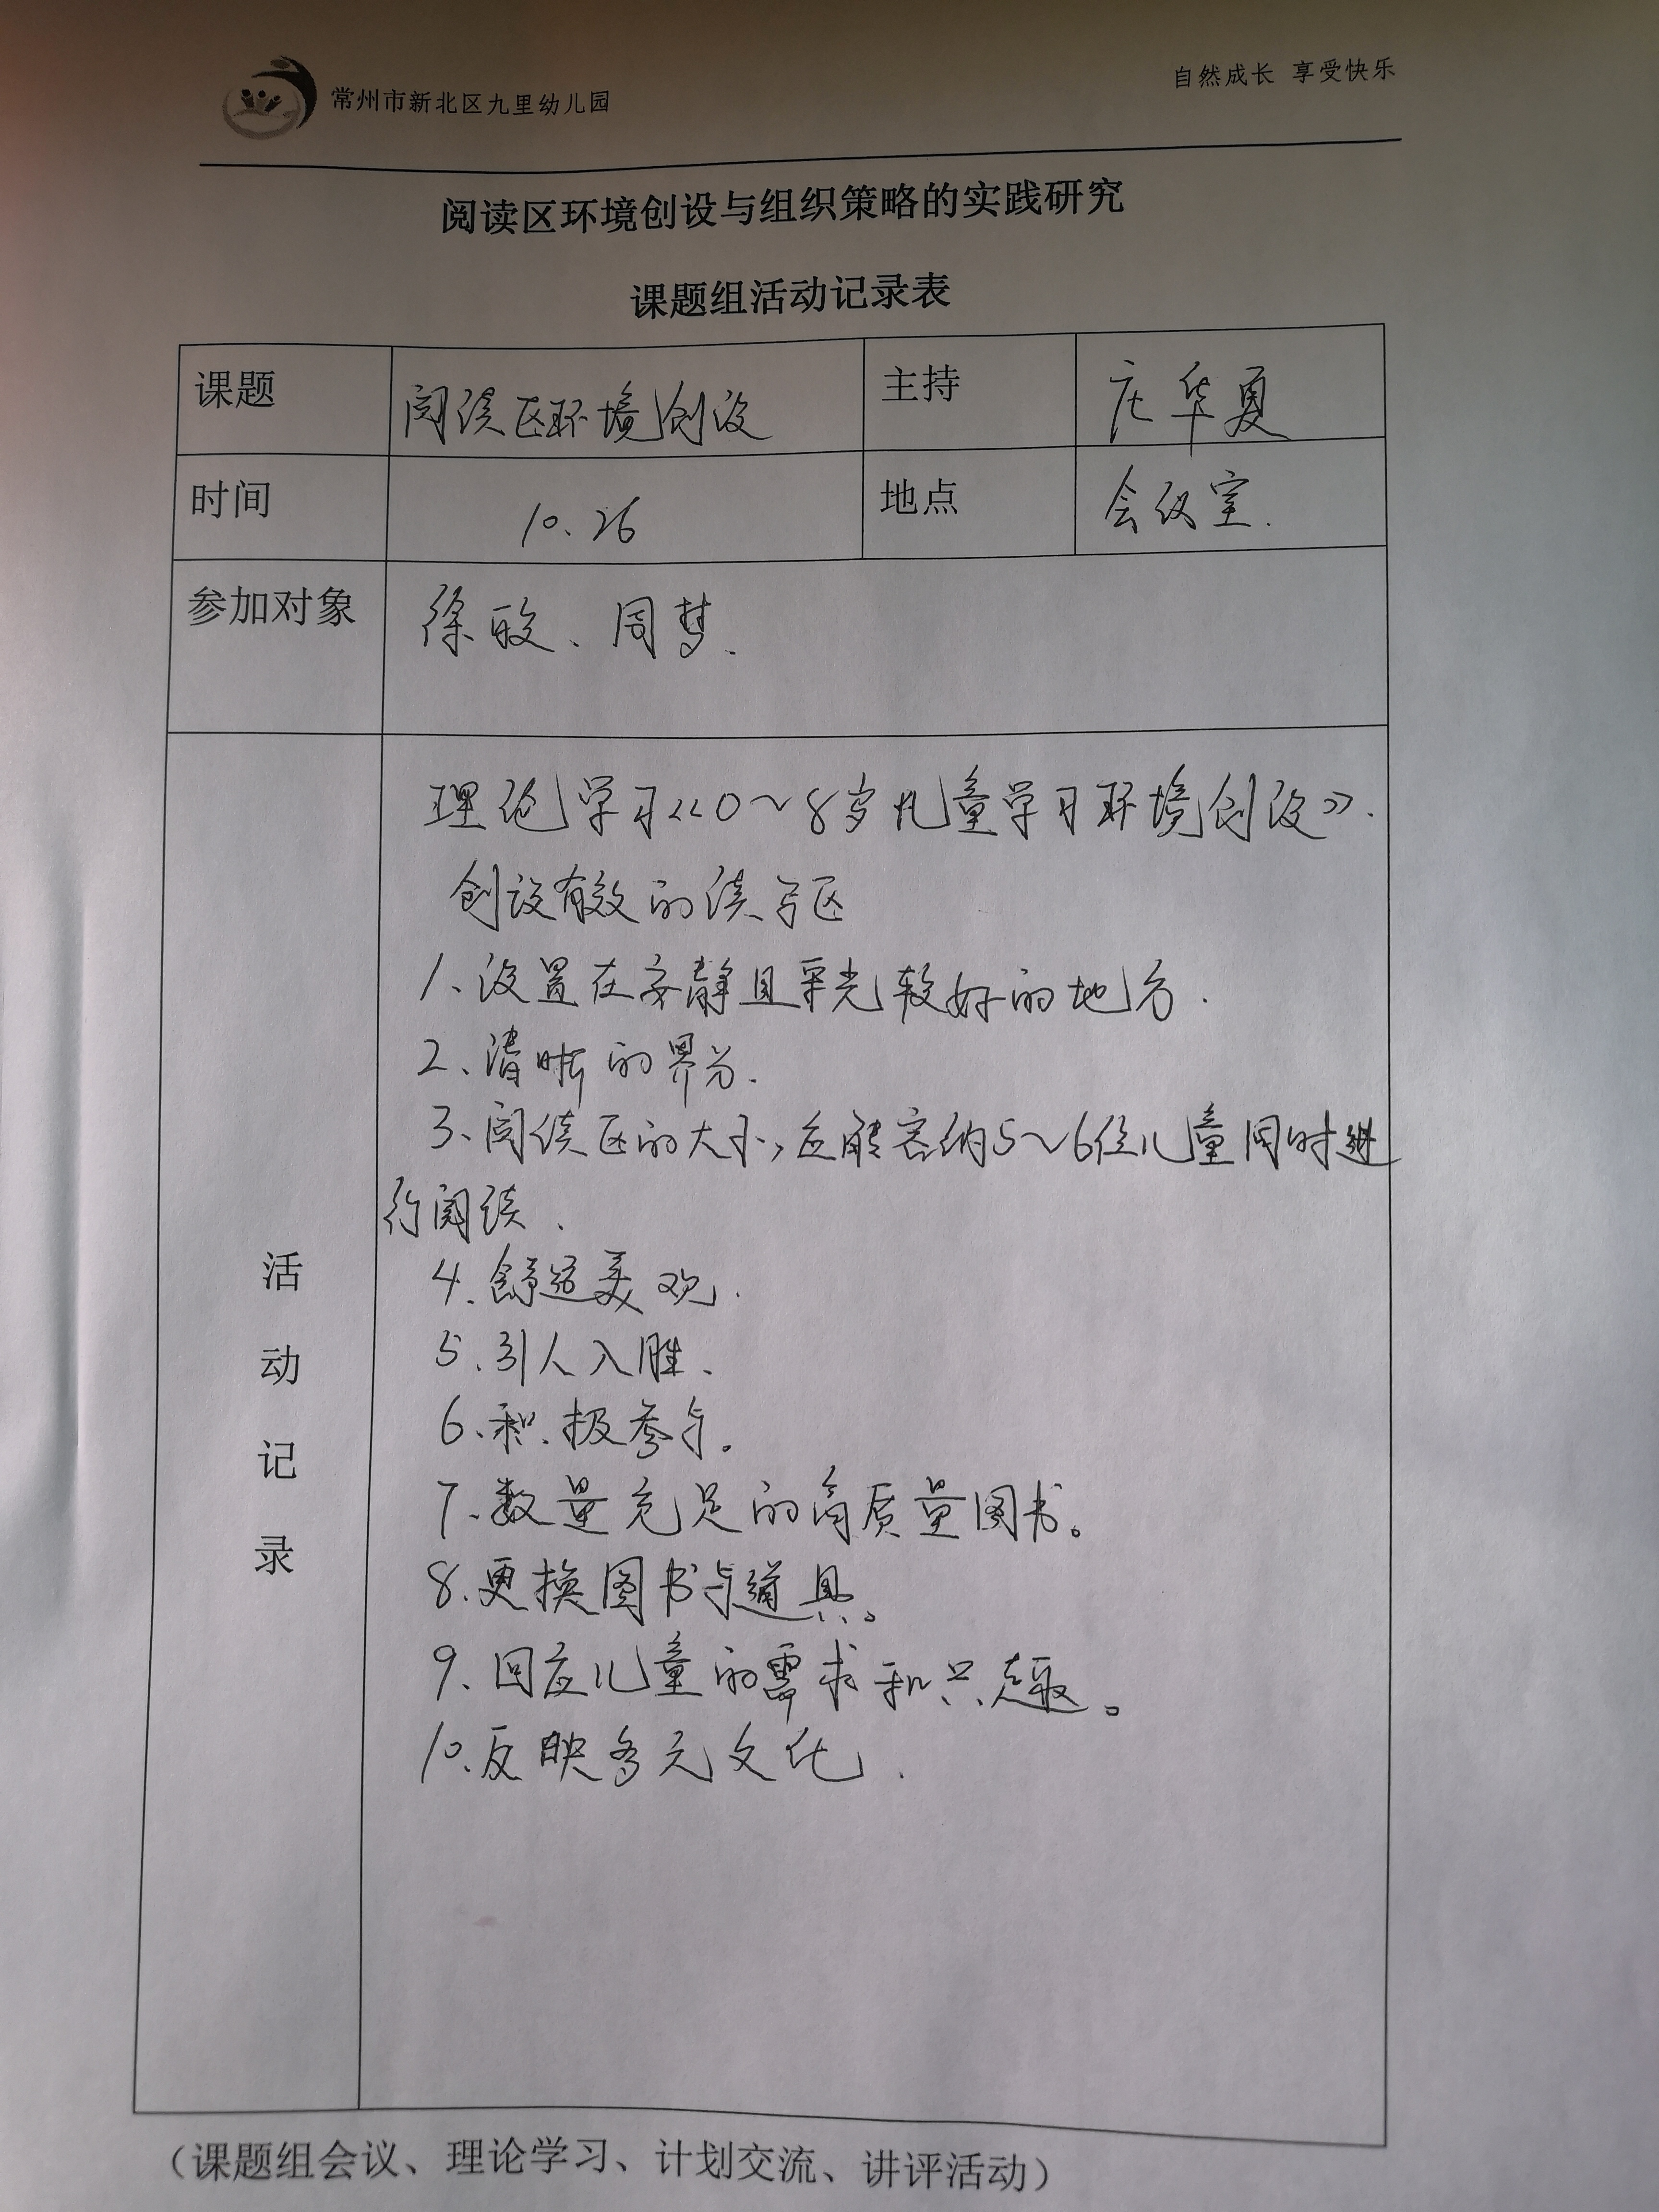 常州市新北区九里幼儿园
自然成长 享受快乐
阅读区环境创设与组织策略的实践研究
课题组活动记录表
课题 阅读区环境创设 主持 庄华夏
时间 10.26 地点 会议室.
参加对象 徐皎、周梦.
活动记录
理论学习《0~8岁儿童学习环境创设》.
创设有效的读写区
1、设置在安静且采光较好的地方.
2、清晰的界分.
3、阅读区的大小,应能容纳5~6位儿童同时进
行阅读、
4.舒适美观.
5.引人入胜、
6、积极参与。
7、数量充足的高质量图书。
8.更换图书与道具。
9.回应儿童的需求和兴趣。
10.反映多元文化.
(课题组会议、理论学习、计划交流、讲评活动)